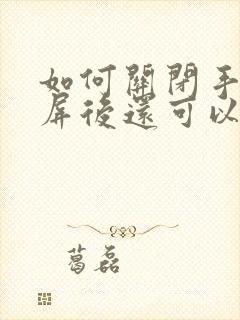 如何關閉手
屏後還可以
葛磊